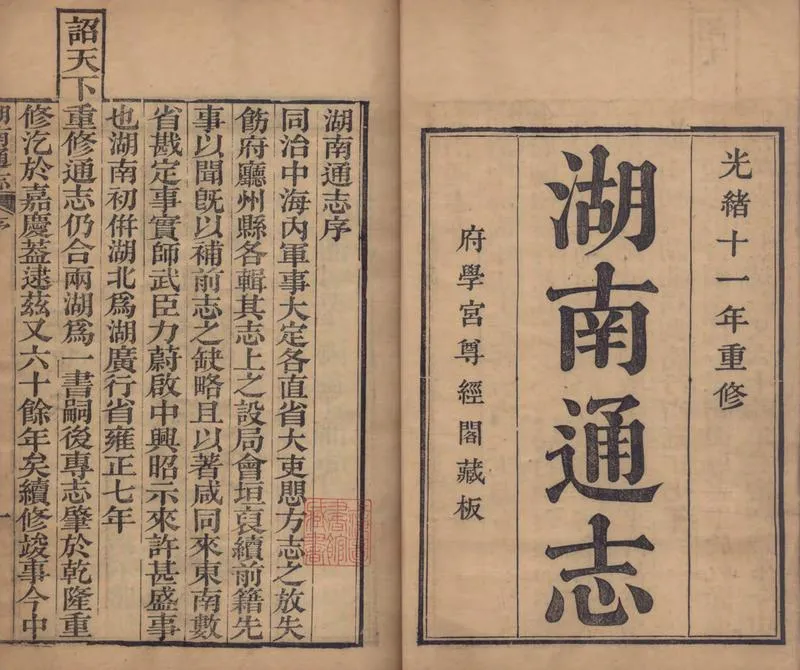 光緒十一年重修
湖南通志
府學宮尊經閣藏板
湖南通志序
同治中海內軍事大定各直省大吏思方志之放失
飭府廳州縣各輯其志上之設局會垣裒續前籍先
事以聞既以補前志之缺略且以著咸同來東南數
省戡定事實師武臣力蔚啟中興昭示來許甚盛事
也湖南初併湖北爲湖廣行省雍正七年
詔天下重修通志仍合兩湖爲一書嗣後專志肇於乾隆重
修汔於嘉慶蓋逮茲又六十餘年矣續修竣事今中
湖南通志 序 一